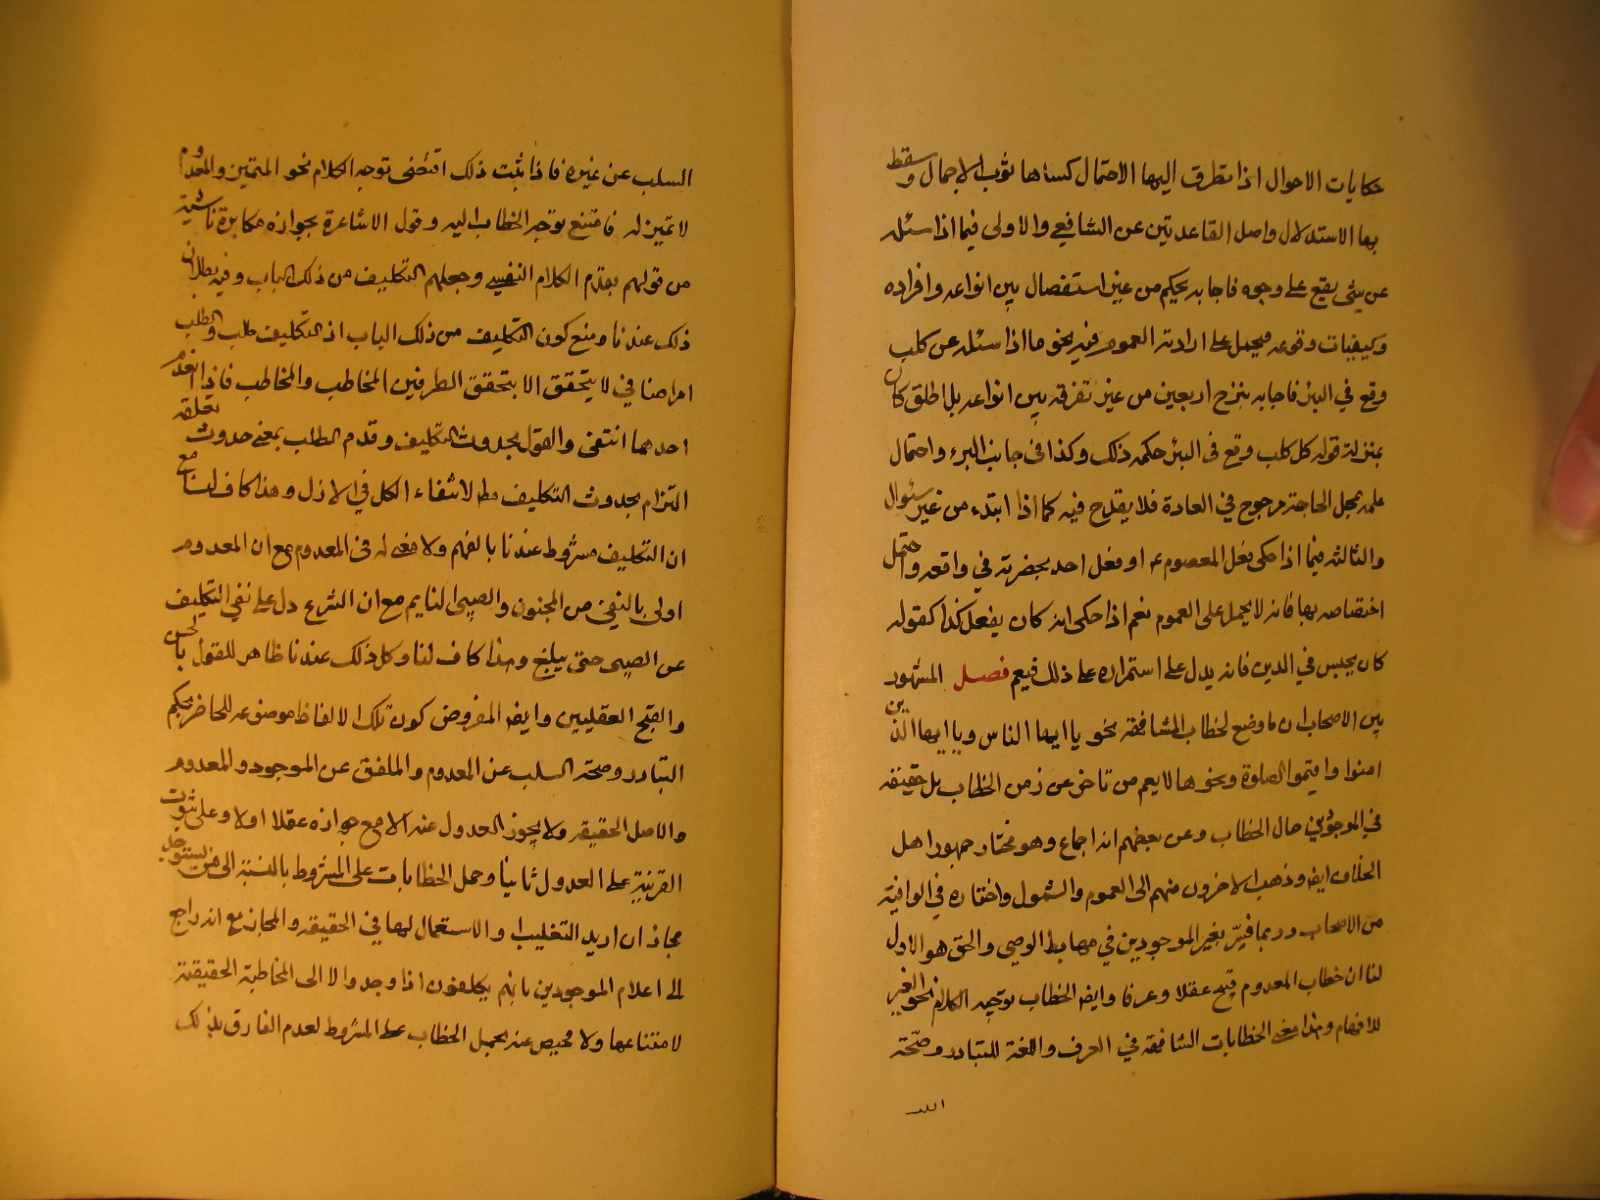 حكايات الاحوال اذا يتطرق اليها الاحتمال كساها ثوب الاجمال وسقط
بها الاستدلال واصل القاعدتين عن الشافعي والاولى فيما اذا سئل
عن شئ يقع على وجوه فاجاب بحكم من غير استفصال بين انواعه وافراده
وكيفيات وقوعه فيحمل على ارادته العموم فيه نحو ما اذا سئل عن كلب
وقع في البئر فاجاب بنزح اربعين من غير تفرقه بين انواعه بل اطلق كان
بمنزلة قوله كل كلب وقع في البئر حكمه ذلك وكذا في جانب البرء واحتمال
علمه بمحل الحاجة مرجوح في العادة فلا يقدح فيه كما اذا ابتدء من غير سئوال
والثالثه فيما اذا حكى فعل المعصوم ع او فعل احد بحضرته في واقعه واحتمل
اختصاصه بها فانه لا يحمل على العموم نعم اذا حكى انه كان يفعل كذا كقوله
كان يجلس في الدين فانه يدل على استمراره على ذلك فيعم فصل المشهور
بين الاصحاب ان ما وضع لخطاب المشافهة نحو يا ايها الناس ويا ايها الذين
امنوا واقيموا الصلوة ونحوها لا يعم من تاخر عن زمن الخطاب بل حقيقة
في الموجودين حال الخطاب وعن بعضهم انه اجماع وهو مختار جمهور اهل
الخلاف ايضا وذهب الاخرون منهم الى العموم والشمول واختاره في الوافية
من الاصحاب وربما فسر بغير الموجودين في مهابط الوحي والحق هو الاول
لنا ان خطاب المعدوم قبيح عقلا وعرفا وايضا الخطاب توجيه الكلام نحو الغير
للافهام وهذا معنى الخطابات الشافهة في العرف واللغة للتبادر وصحة
السلب عن غيره فاذا ثبت ذلك اقتضى توجه الكلام نحو المتميز والمعدوم
لا تميز له فامتنع توجه الخطاب اليه وقول الاشاعرة بجوازه مكابرة ناشية
من قولهم بقدم الكلام النفسي وجعلهم التكليف من ذلك الباب وفيه بطلان
ذلك عندنا ومنع كون التكليف من ذلك الباب اذ التكليف طلب والطلب
امر اضافي لا يتحقق الا بتحقق الطرفين المخاطب والمخاطب فاذا انعدم
احدهما انتفى والقول بحدوث التكليف وقدم الطلب بمعنى حدوث تعلقه
التزام بحدوث التكليف مط لانتفاء الكل في الازل وهذا كاف لنا مع
ان التكليف مشروط عندنا بالفهم ولا معنى له في المعدوم مع ان المعدوم
اولى بالنفي من المجنون والصبي النايم مع ان الشرع دل على نفي التكليف
عن الصبي حتى يبلغ وهذا كاف لنا وكل ذلك عندنا ظاهر للقول بالحسن
والقبح العقليين وايضا المفروض كون تلك الالفاظ موضوعه للحاضر بحكم
التبادر وصحة السلب عن المعدوم والملفق عن الموجود والمعدوم
والاصل الحقيقة ولا يجوز العدول عنه الا مع جوازه عقلا اولا وعلى ثبوت
القرينة على العدول ثانيا وحمل الخطابات على المشروط بالنسبة الى من سيتوجد
مجاز ان اريد التغليب والاستعمال لها في الحقيقة والمجاز مع انه راجع
الى اعلام الموجودين بانهم يكلفون اذا وجدوا لا الى المخاطبة الحقيقية
لامتناعها ولا محيص عنه بحمل الخطاب على المشروط لعدم الفارق بذلك